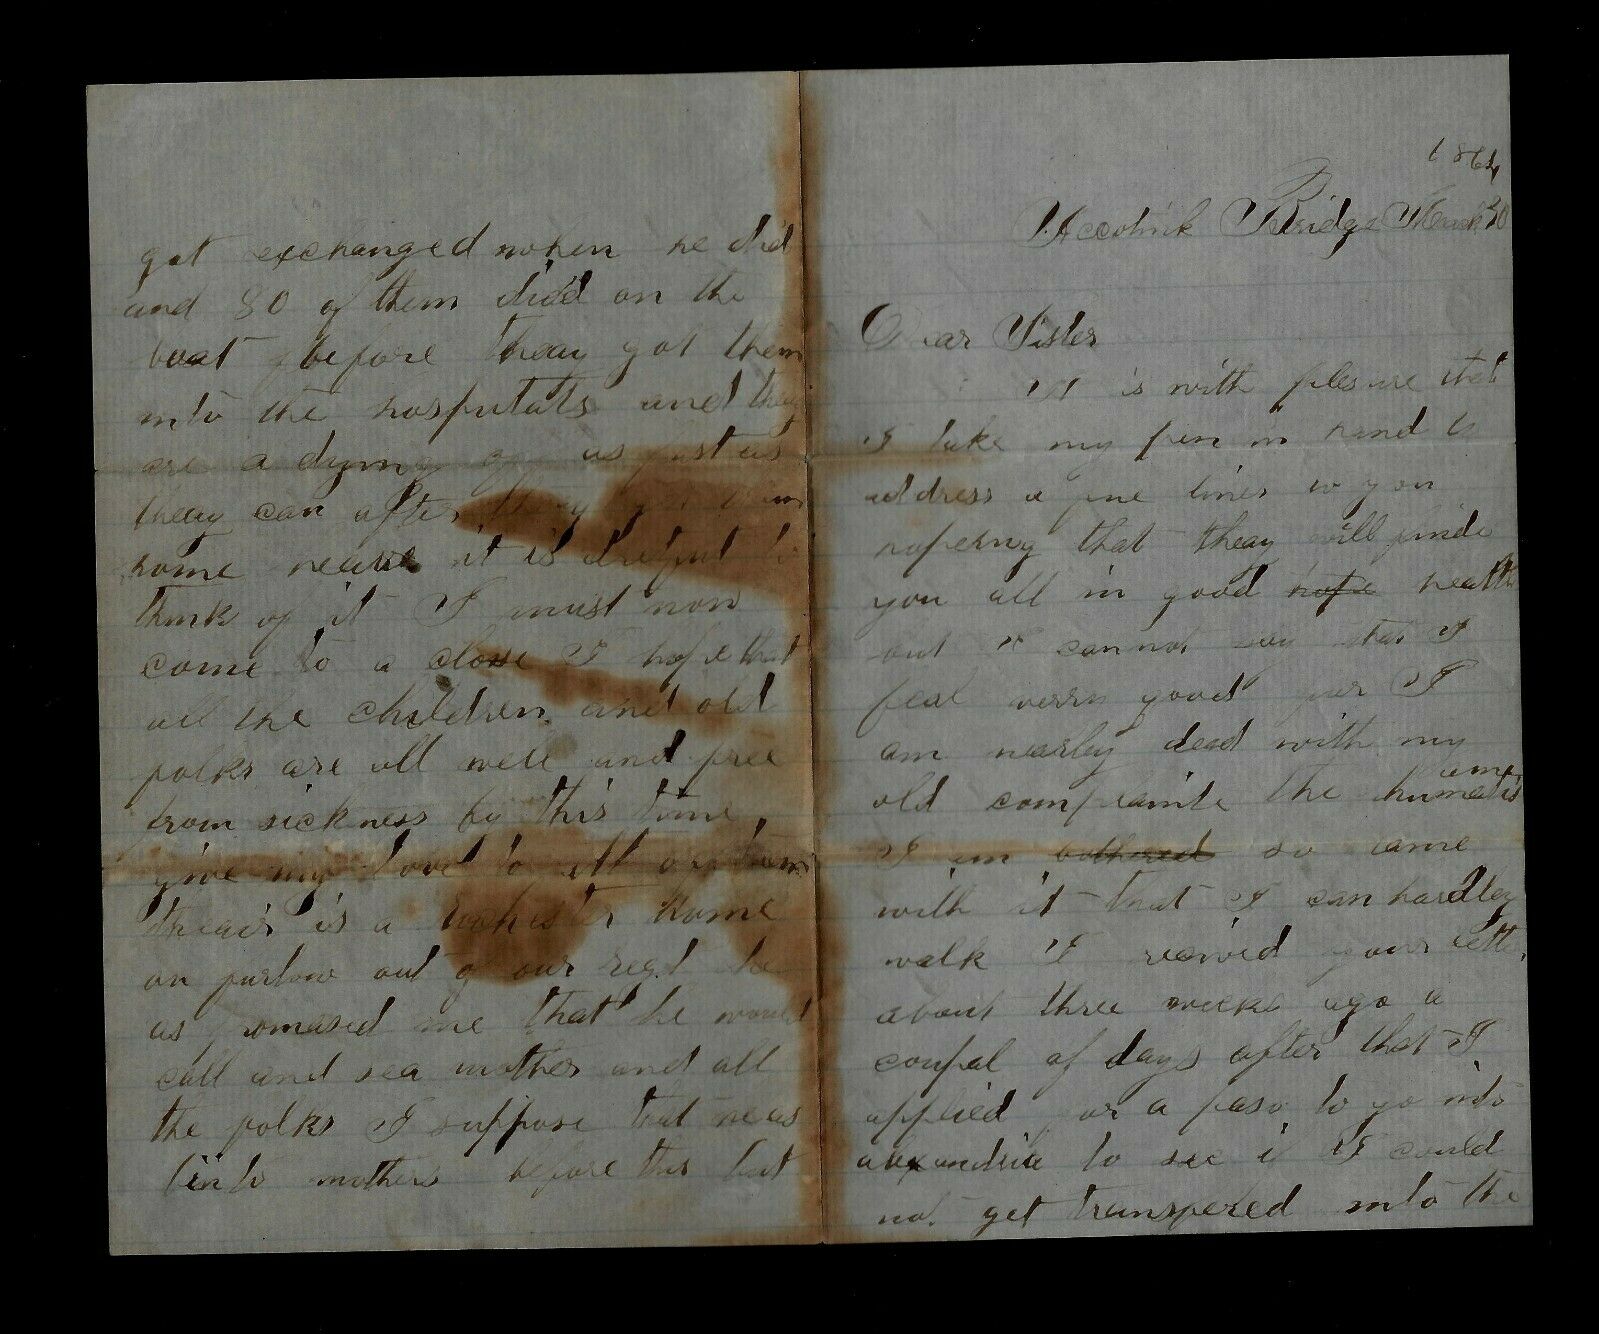 1864
Accotink Bridge March 20
Dear Sister
It is with plesure that
I take my pen in hand to
address a fue lines to you
hopeing that theay will finde
you all in good hope health
but I cannot say that I
feal verry good for I
am nearley dead with my
old complainte the
I am bothered so lame
with it that I can hardley
walk I reacived your lette
about three weeks ago a
coupal of days after that I
applied for a pass to go into
alexandria to see if I could
not get transfered into the
got exchanged when he did
and 80 of them died on the
boat before theay got them
into the hosputals and thay
are a dying of as fast as
theay can after they get them
home it is dredful to
think of it I must now
come to a close I hope that
all the children and old
folks are all well and free
from sickness by this time
give my love to all of them
theair is a Rochister home
on furlow out of our regt he
as promased me that he would
call and sea mother and all
the folks I suppose that he as
bin to mothers before this but